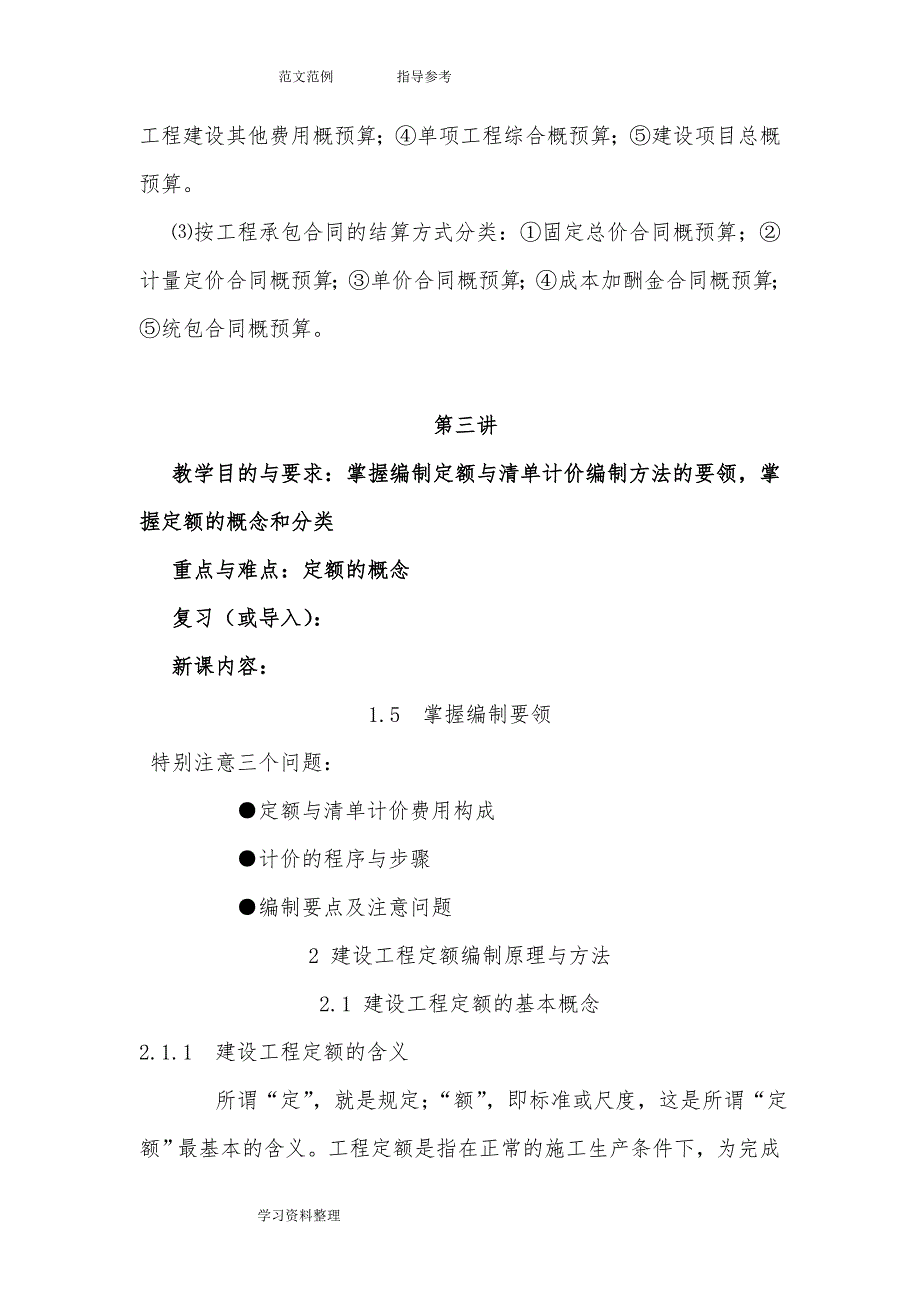 范文范例 指导参考
工程建设其他费用概预算；④单项工程综合概预算；⑤建设项目总概
预算。
⑶按工程承包合同的结算方式分类：①固定总价合同概预算；②
计量定价合同概预算；③单价合同概预算；④成本加酬金合同概预算；
⑤统包合同概预算。
第三讲
教学目的与要求：掌握编制定额与清单计价编制方法的要领，掌
握定额的概念和分类
重点与难点：定额的概念
复习（或导入）：
新课内容：
1.5 掌握编制要领
特别注意三个问题：
●定额与清单计价费用构成
●计价的程序与步骤
●编制要点及注意问题
2 建设工程定额编制原理与方法
2.1 建设工程定额的基本概念
2.1.1 建设工程定额的含义
所谓“定”，就是规定；“额”，即标准或尺度，这是所谓“定
额”最基本的含义。工程定额是指在正常的施工生产条件下，为完成
学习资料整理